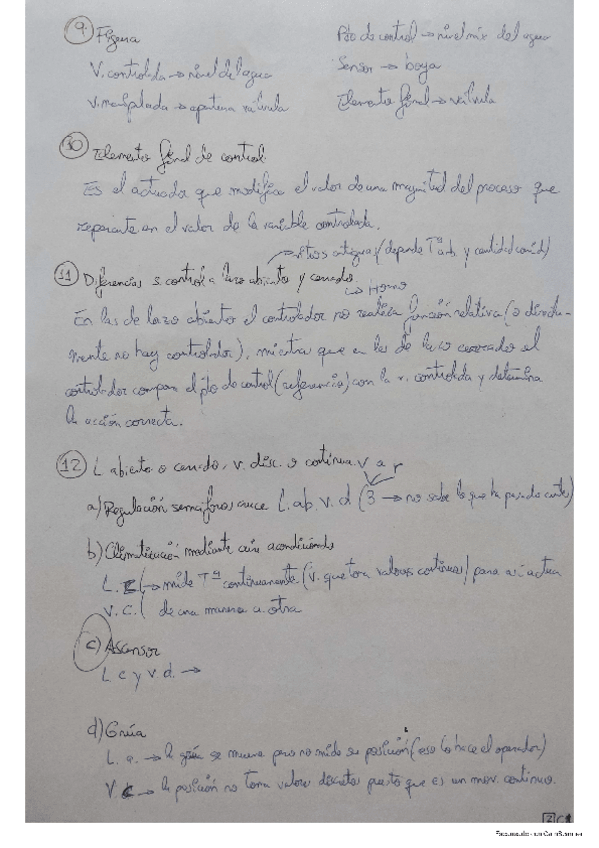 9. Figura
V. controlada → nivel del agua
V. manipulada → apertura válvula
Pto de control → nivel máx del agua
Sensor → boya
Elemento final → válvula
10 Elemento final de control
Es el actuador que modifica el valor de una magnitud del proceso que
repercute en el valor de la variable controlada.
→ riegos antiguos (depende Tª amb. y cantidad
11 Diferencias s. control a lazo abierto y cerrado
↳ Horno
En los de lazo abierto el controlador no realiza función relativa (o directa-
mente no hay controlador), mientras que en los de lazo cerrado el
controlador compara el pto de control (referencia) con la v. controlada y determina
la acción correcta.
12 L abierto o cerrado, v. disc. o continua. V a r
a) Regulación semáforos cruce L. ab. V. d (3 → no sabe lo que ha pasado antes)
b) Climatización mediante aire acondicionado
L. C (→ mide Tª continuamente (V. que toma valores continuos) para así actua
V. C. ( de una manera u otra
c) Ascensor
L c y v d. →
d) Grúa
L. a. → la grúa se mueve pero no mide su posición (eso lo hace el operador)
V C → la posición no toma valores discretos puesto que es un mov. continuo.